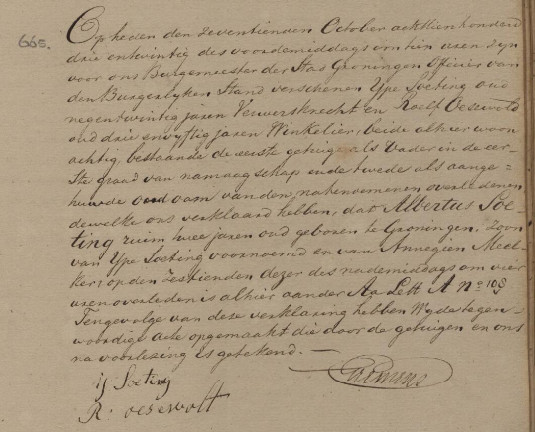 665.
Op heden den zeventienden October achttienhonderd
drie entwintig des voordemiddags om tien uren zyn
voor ons Burgemeester der Stad Groningen Officier van
den Burgerlyken Stand verschenen Ype Soeting oud
negentwintig jaren Verwersknecht en Roelf Oesewold
oud drie envyftig jaren Winkelier, beide alhier woon
achtig, bestaande de eerste getuige als Vader in de eer-
ste graad van namaagschap ende twede als aange-
huwde oud oom van den natenoemenen overledenen
dewelke ons verklaard hebben, dat Albertus Soe-
ting ruim twee jaren oud geboren te Groningen, Zoon
van Ype Soeting voornoemd en van Annegien Meel-
ker; op den Zestienden dezer des nademiddags om vier
uren overleden is alhier aan der Aa Lett A No 108
Tengevolge van deze verklaring hebben Wy de tegen-
woordige acte opgemaakt die door de getuigen en ons
na voorlezing is getekend. —
ij Soeting
R. oesewolt